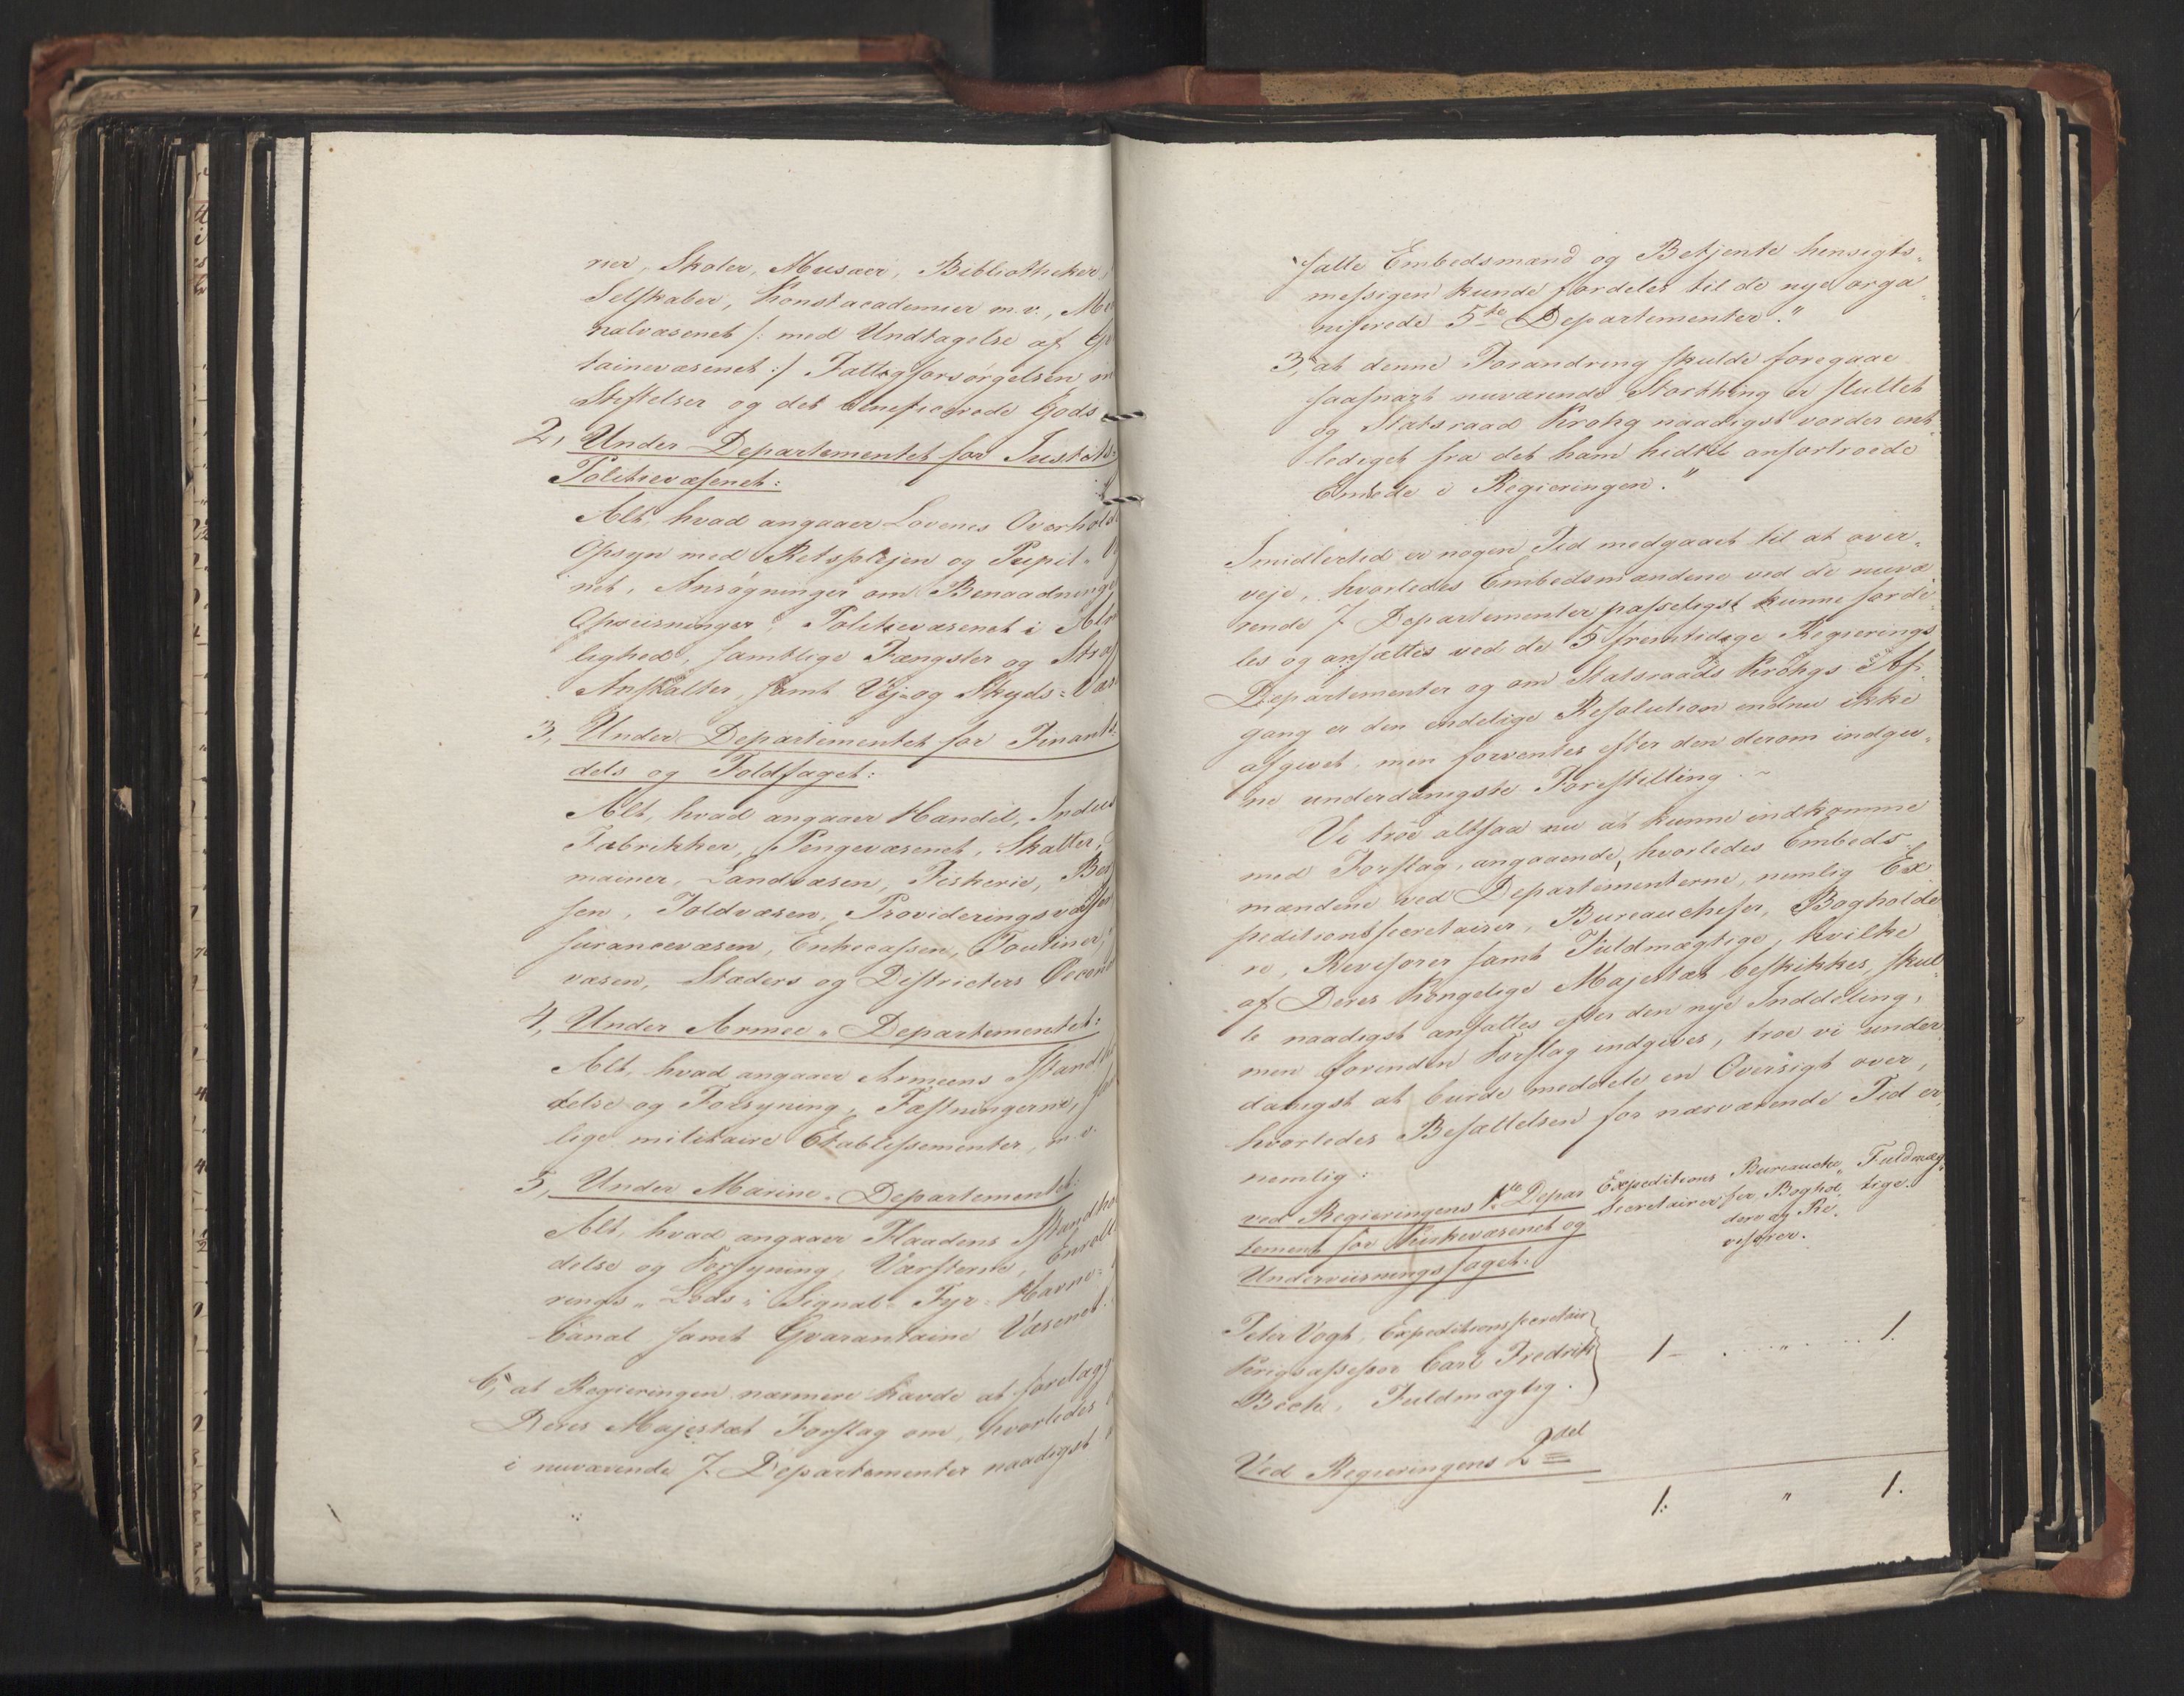 rier, Skoler, Musæer, Bibliotheker,
Selskaber, Konstacademier m.v., Me
nalvæsenet /: med Undtagelse af
tainevæsenet :/ Fattigforsørgelsen, m
Stiftelser og det beneficerede Gods.
2, Under Departementet for Justits-
Politievæsenet:
Alt, hvad angaaer Lovenes Overhold
Opsyn med Retsplejen og Pupil-
net, Ansøgninger om Benaadninger
Opreisninger, Politievæsenet i Alm
lighed, samtlige Fængsler og Straf
Anstalter, samt Vej- og Skyds-Væs
3, Under Departementet for Finants,
dels og Toldfaget:
Alt, hvad angaaer Handel, Indus
Fabrikker, Pengevæsenet, Skatter,
mainer, Landvæsen, Fiskerie, Ber
sen, Toldvæsen, Provideringsvæsen
surancevæsen, Enkecassen, Tontiner,
væsen, Stæders og Districters Oecono
4, Under Armee-Departementet:
Alt, hvad angaaer Armeens Istand
delse og Forsyning, Fæstningerne,
lige militaire Etablissementer, m.v.
5, Under Marine-Departementet:
Alt, hvad angaaer Flaadens Istandhol
delse og Forsyning, Værfterne, Enroll
rings- Lods- Signal- Fyr- Havne-
Canal samt Qvarantaine Væsenet.
6, at Regieringen nærmere havde at forelægg
Deres Majestæt Forslag om, hvorledes
i nuværende 7 Departementer naadigst
satte Embedsmænd og Betjente hensigts-
messigen kunde fordeles til de nye orga-
niserede 5te Departementer."
3, at denne Forandring skulde foregaae
saasnart nuværende Storthing er sluttet
og Statsraad Krohg naadigst vorder ent-
lediget fra det ham hidtil anfortroede
Embede i Regieringen."
Imidlertid er nogen Tid medgaaet til at over-
veje, hvorledes Embedsmændene ved de nuvæ
rende 7 Departementer passeligst kunne forde-
les og ansættes ved de 5 fremtidige Regierings
Departementer og om Statsraads Krohgs Af-
gang er den endelige Resolution endnu ikke
afgivet, men forventes efter den derom indgiv-
ne underdanigste Forestilling.
Vi troe altsaa nu at kunne indkomme
med Forslag, angaaende, hvorledes Embeds-
mændene ved Departementerne, nemlig Ex
peditionssecretairer, Bureauchefer, Bogholde
re, Revisorer samt Fuldmægtige, hvilke
af Deres Kongelige Majestæt beskikkes, skul-
le naadigst ansættes efter den nye Inddeling,
men forinden Forslag indgives, troe vi under
danigst at burde meddele en Oversigt over,
hvorledes Besættelsen for nærværende Tid er,
nemlig:
ved Regieringens 1ste Depar
tement for Kirkevæsenet og
Underviisningsfaget.
Expeditions
Secretairer
Bureauche-
fer, Boghol-
dere og Re-
visorer.
Fuldmæg-
tige.
Peter Vogt, Expeditionssecretair
Krigsassessor Carl Fredrik
Bich, Fuldmægtig.
1 – . . . . " . . . . 1.
Ved Regieringens 2det
1. " 1.